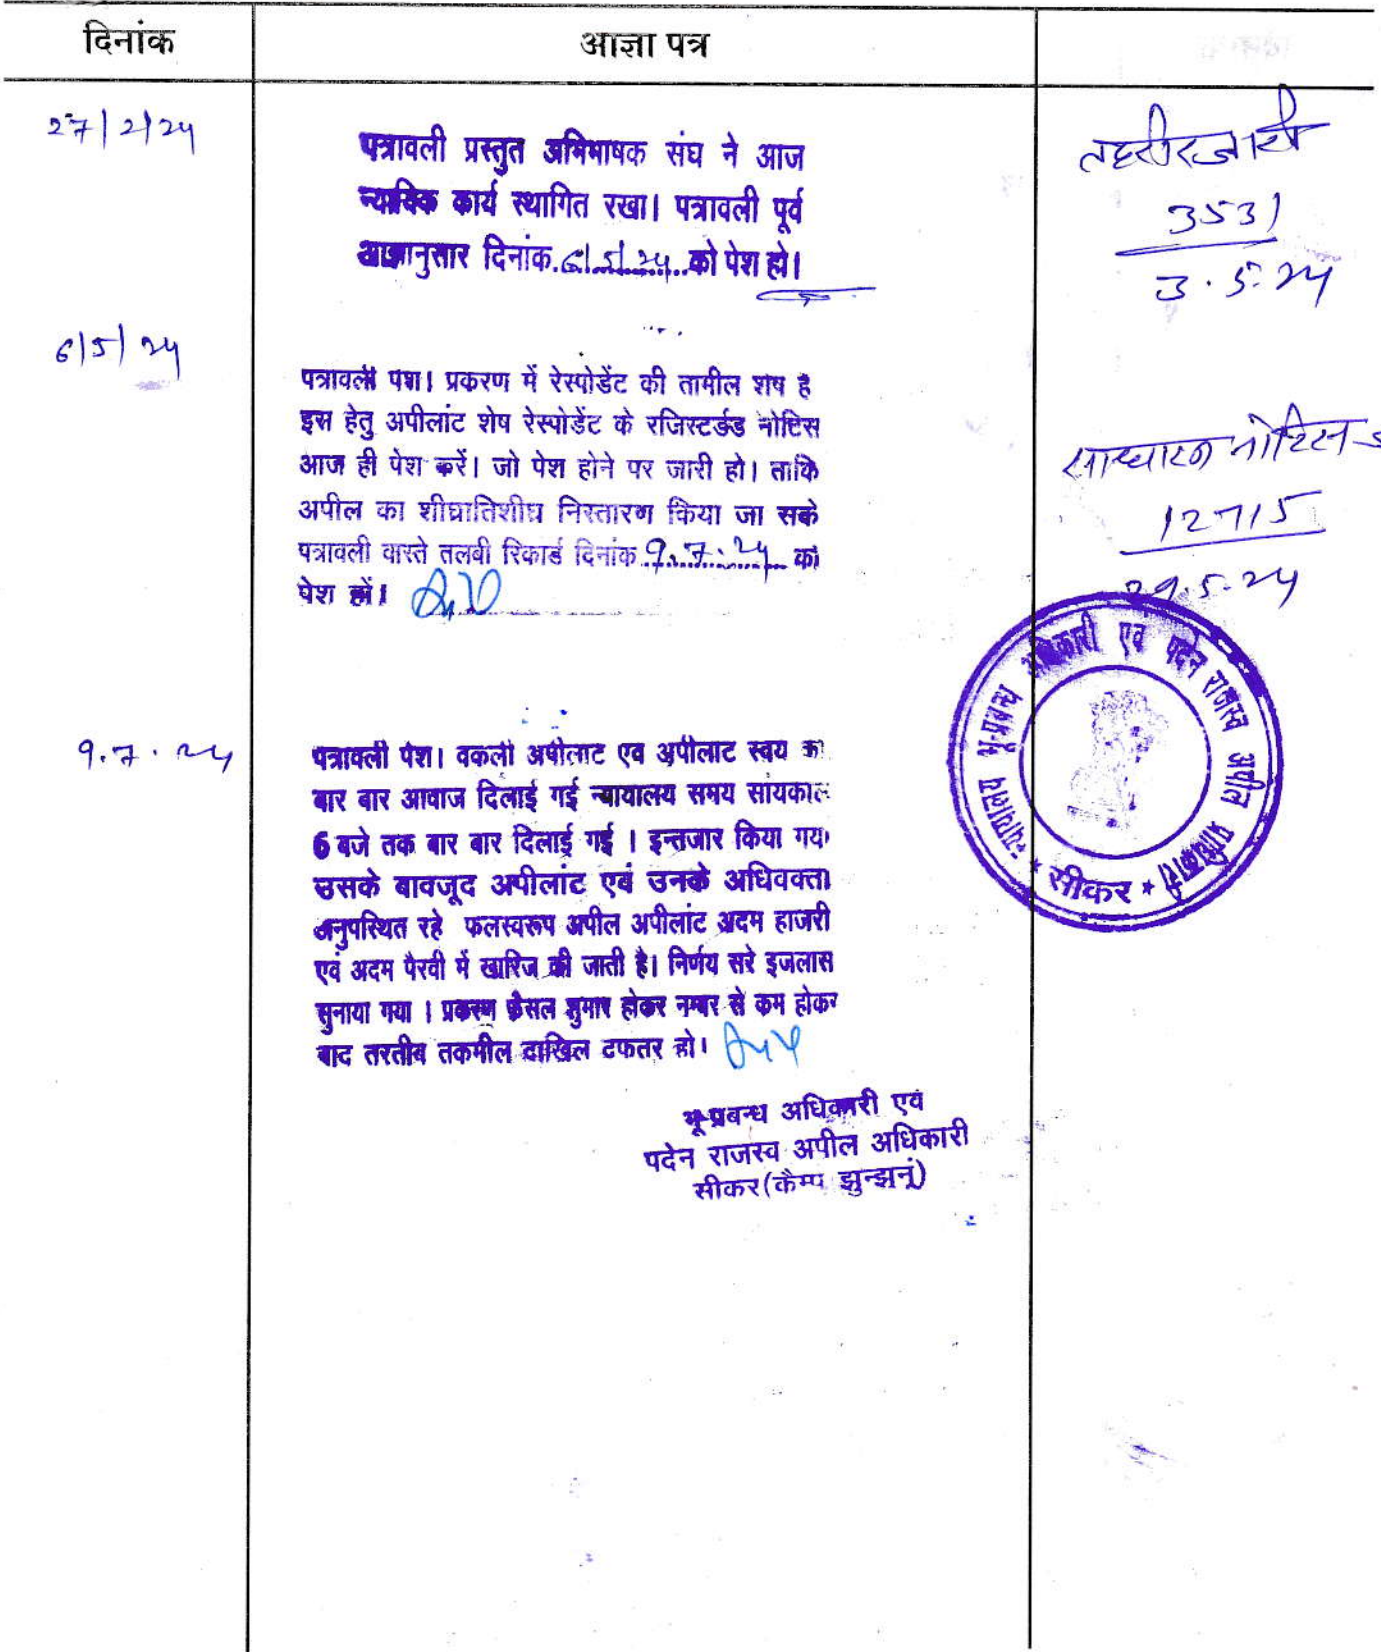 दिनांक
आज्ञा पत्र
27/2/24
पत्रावली प्रस्तुत अभिभाषक संघ ने आज
न्यायिक कार्य स्थागित रखा। पत्रावली पूर्व
आज्ञानुसार दिनांक 6/5/24 को पेश हो।
तहरीर जारी
3531
3.5.24
6/5/24
पत्रावली पेश। प्रकरण में रेस्पोडेंट की तामील शेष है
इस हेतु अपीलांट शेष रेस्पोडेंट के रजिस्टर्ड नोटिस
आज ही पेश करें। जो पेश होने पर जारी हो। ताकि
अपील का शीघ्रातिशीघ्र निस्तारण किया जा सके
पत्रावली वास्ते तलबी रिकार्ड दिनांक 9.7.24 को
पेश हों।
साधारण नोटिस
12715
29.5.24
9.7.24
पत्रावली पेश। वकली अपीलाट एव अपीलाट स्वय को
बार बार आवाज दिलाई गई न्यायालय समय सांयकाल
6 बजे तक बार बार दिलाई गई । इन्तजार किया गया
उसके बावजूद अपीलांट एवं उनके अधिवक्ता
अनुपस्थित रहे फलस्वरूप अपील अपीलांट अदम हाजरी
एवं अदम पैरवी में खारिज की जाती है। निर्णय सरे इजलास
सुनाया गया । प्रकरण फैसल शुमार होकर नम्बर से कम होकर
बाद तरतीब तकमील दाखिल दफतर हो।
न्यायालय भू-प्रबन्ध अधिकारी एवं पदेन राजस्व अपील प्राधिकारी
* सीकर *
भू-प्रबन्ध अधिकारी एवं
पदेन राजस्व अपील अधिकारी
सीकर (कैम्प झुन्झनूं)